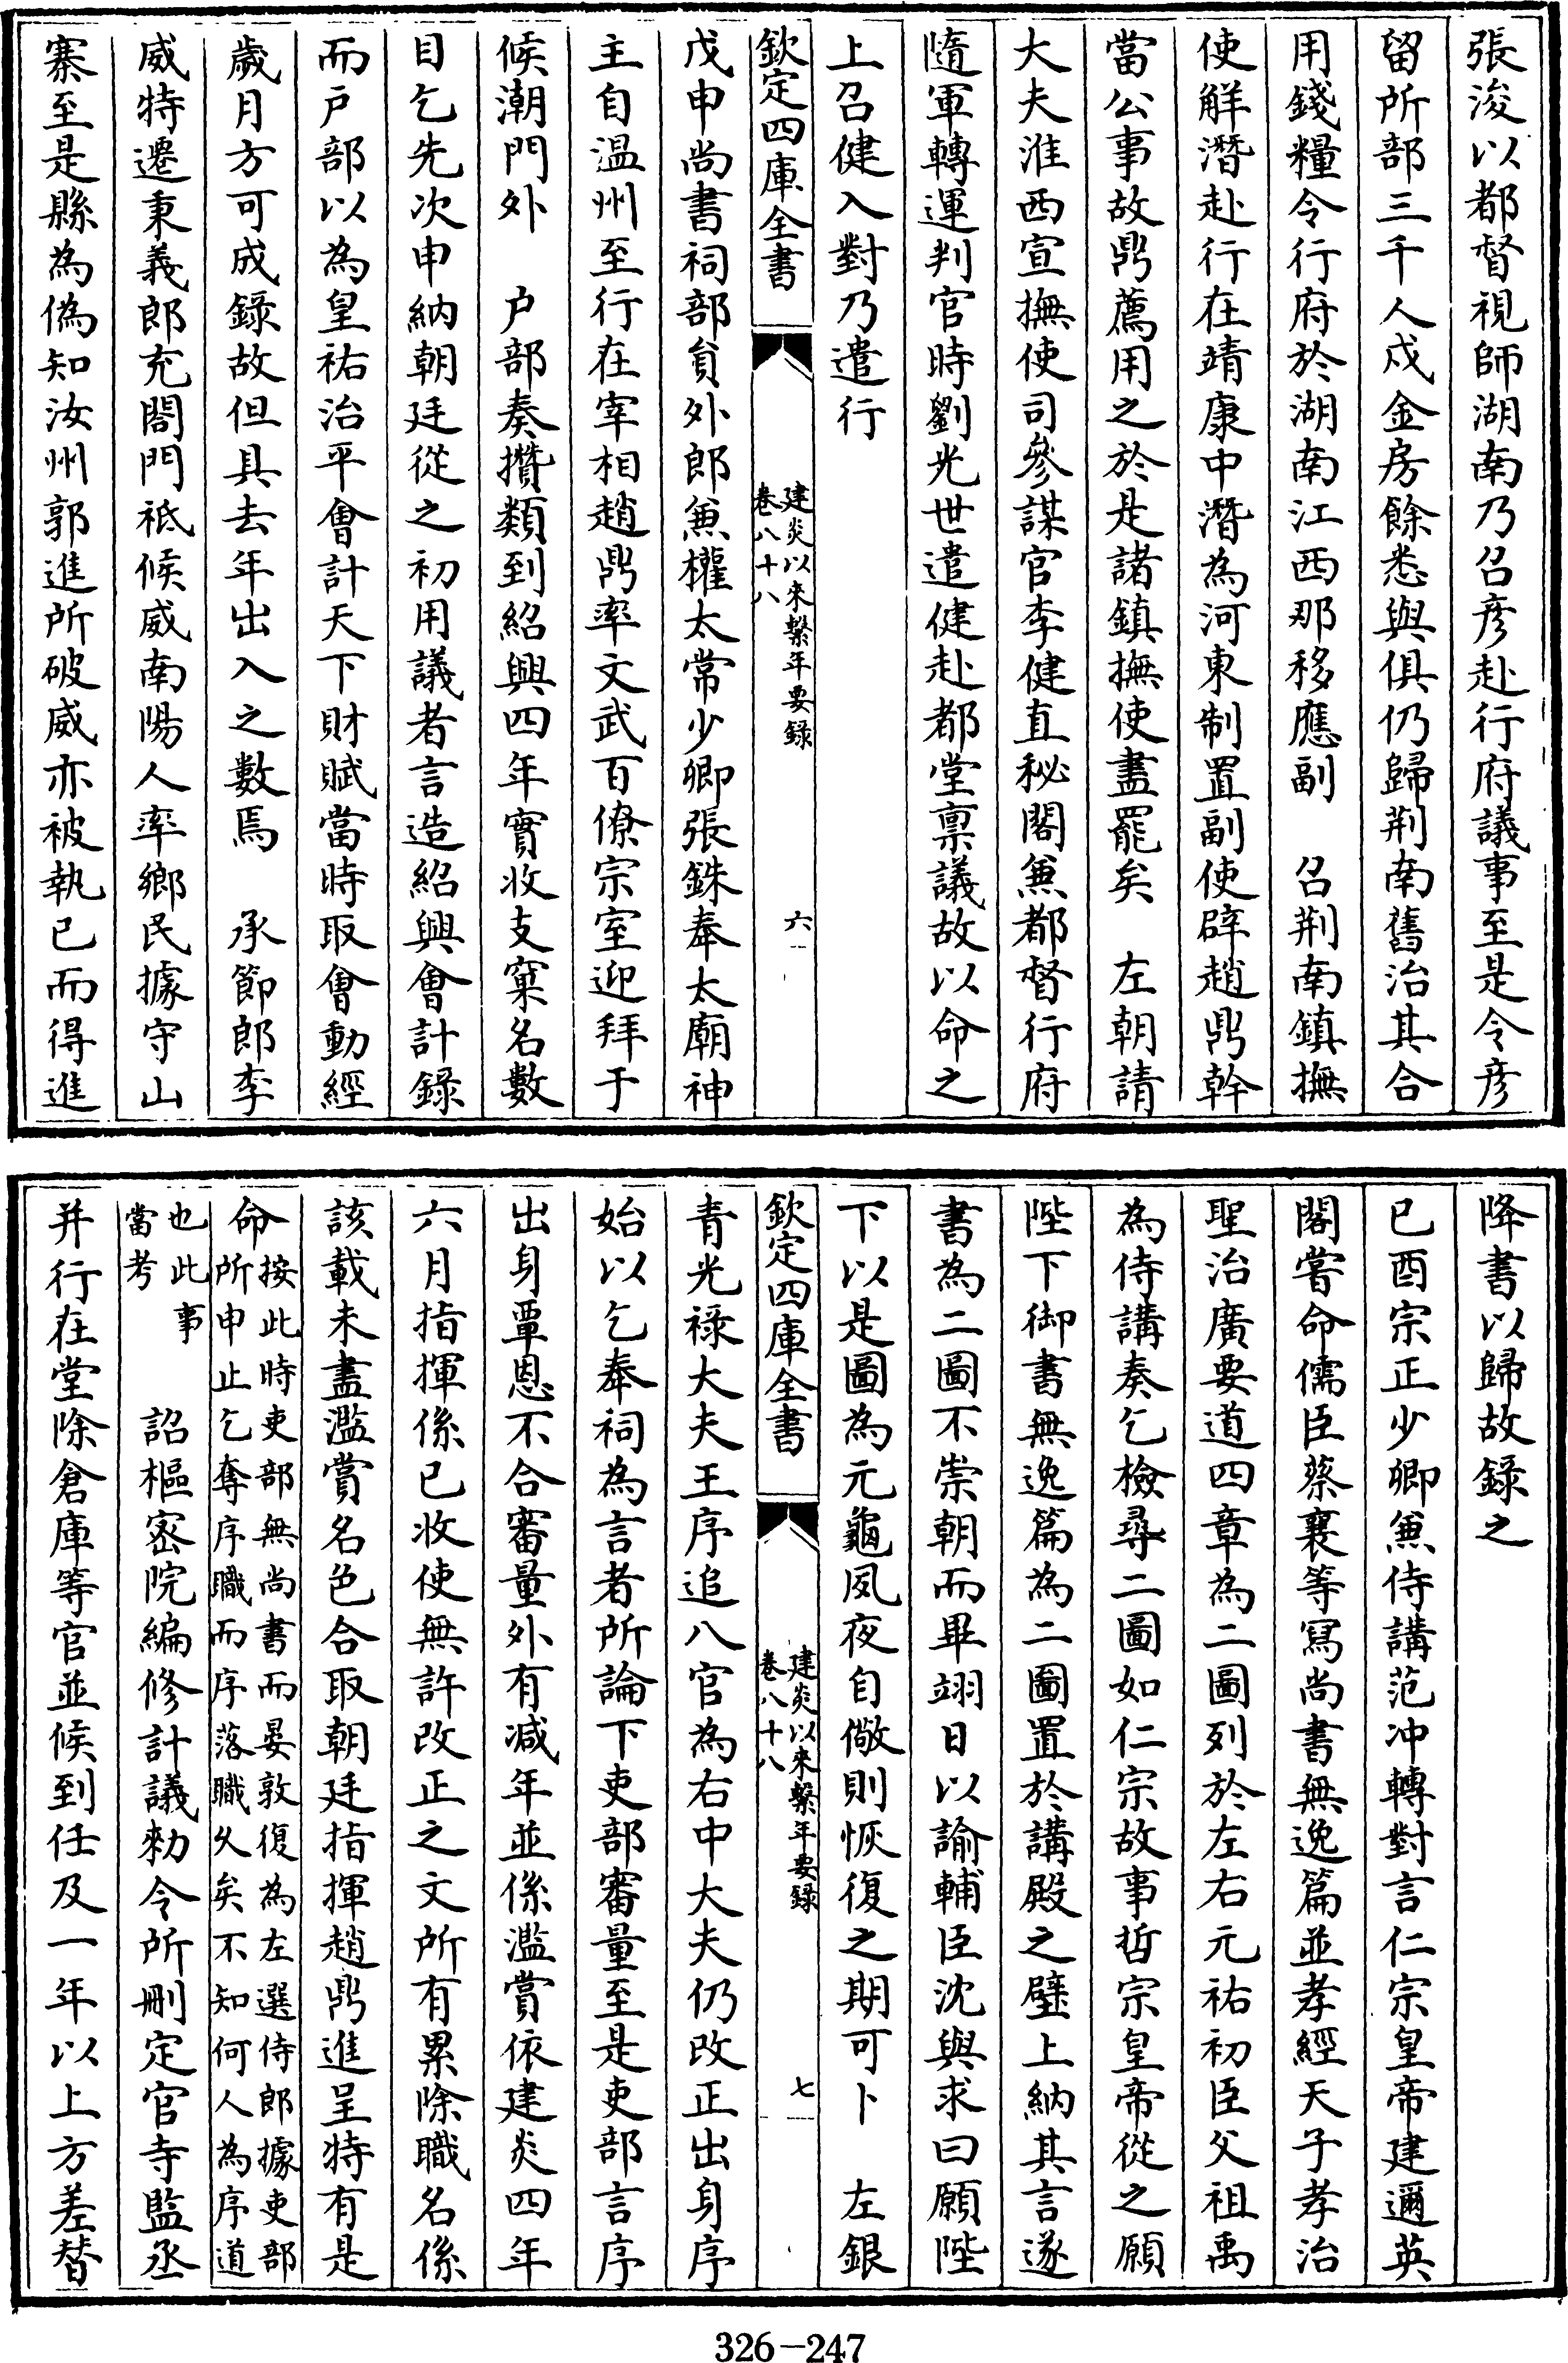 張浚以都督視師湖南乃召彥赴行府議事至是令彥
留所部三千人戍金房餘悉與俱仍歸荆南舊治其合
用錢糧令行府於湖南江西那移應副　召荆南鎮撫
使解潛赴行在靖康中潛為河東制置副使辟趙鼎幹
當公事故鼎薦用之於是諸鎮撫使盡罷矣　左朝請
大夫淮西宣撫使司參謀官李健直秘閣兼都督行府
隨軍轉運判官時劉光世遣健赴都堂稟議故以命之
上召健入對乃遣行
欽定四庫全書
建炎以來繫年要錄
卷八十八
六
戊申尚書祠部員外郎兼權太常少卿張銖奉太廟神
主自溫州至行在宰相趙鼎率文武百僚宗室迎拜于
候潮門外　户部奏攢類到紹興四年實收支窠名數
目乞先次申納朝廷從之初用議者言造紹興會計錄
而户部以為皇祐治平會計天下財賦當時取會動經
歲月方可成錄故但具去年出入之數焉　承節郎李
威特遷秉義郎充閤門祗候威南陽人率鄉民據守山
寨至是縣為偽知汝州郭進所破威亦被執已而得進
降書以歸故錄之
已酉宗正少卿兼侍講范冲轉對言仁宗皇帝建邇英
閣嘗命儒臣蔡襄等寫尚書無逸篇並孝經天子孝治
聖治廣要道四章為二圖列於左右元祐初臣父祖禹
為侍講奏乞檢尋二圖如仁宗故事哲宗皇帝從之願
陛下御書無逸篇為二圖置於講殿之壁上納其言遂
書為二圖不崇朝而畢翊日以諭輔臣沈與求曰願陛
下以是圖為元龜夙夜自儆則恢復之期可卜　左銀
欽定四庫全書
建炎以來繫年要錄
卷八十八
七
青光祿大夫王序追八官為右中大夫仍改正出身序
始以乞奉祠為言者所論下吏部審量至是吏部言序
出身覃恩不合審量外有減年並係濫賞依建炎四年
六月指揮係已收使無許改正之文所有累除職名係
該載未盡濫賞名色合取朝廷指揮趙鼎進呈特有是
命
按此時吏部無尚書而晏敦復為左選侍郎據吏部
所申止乞奪序職而序落職久矣不知何人為序道
也此事
當考
詔樞密院編修計議勑令所刪定官寺監丞
并行在堂除倉庫等官並候到任及一年以上方差替
326-247